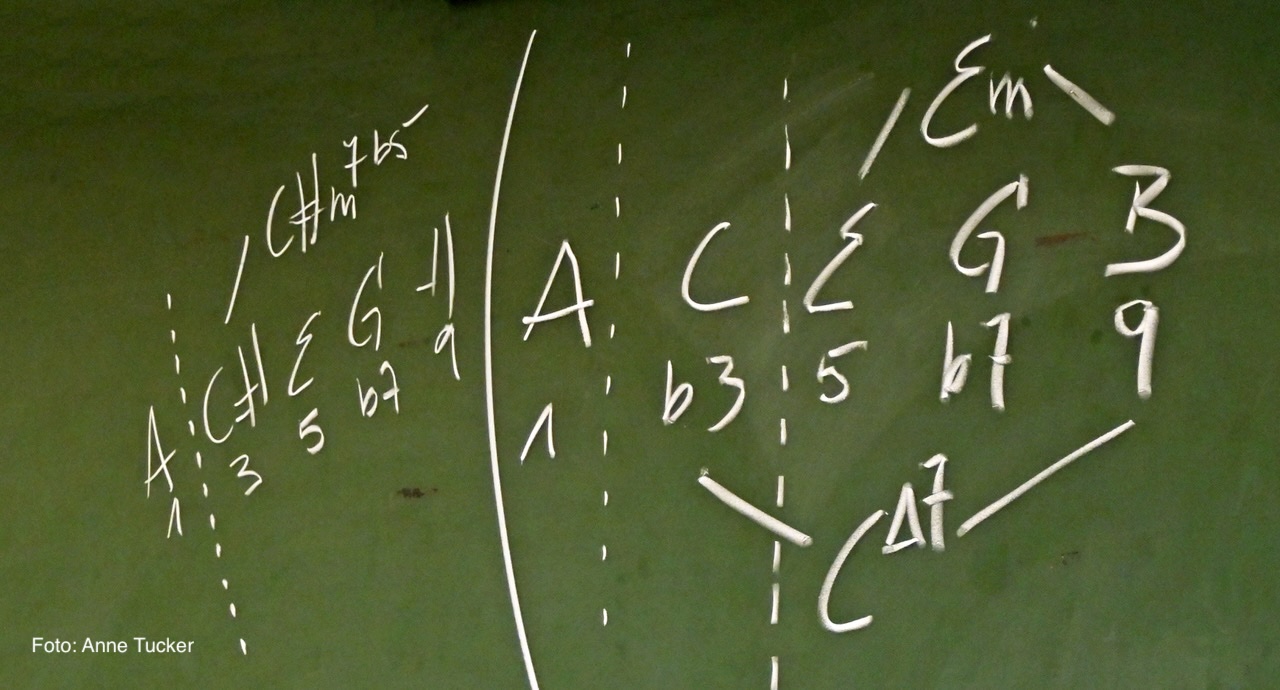 C#m7b5
A C# E G H
1 3 5 b7 9
Em
A C E G B
1 b3 5 b7 9
CΔ7
Foto: Anne Tucker